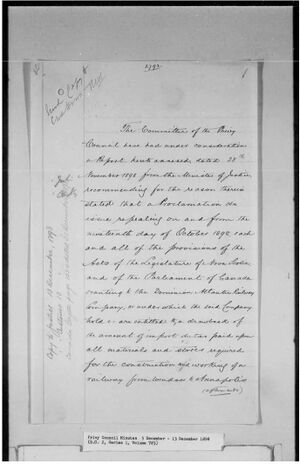 2792
Send Copy
Customs
The Committee of the Privy
Council have had under consideration
a Report hereto annexed, dated 28th
November 1898 from the Minister of
recommending for the reason therein
stated that a Proclamation do
issue repealing on and from the
nineteenth day of October 1892, each
and all of the provisions of the
Acts of the Legislature of Nova Scotia
and of the Parliament of Canada
granting to the Dominion Atlantic Railway
Company, or under which the said Company
hold or are entitled to a drawback of
the amount of import duties paid upon
all materials and stores required
for the construction and working of a
railway from Windsor to Annapolis
Privy Council Minutes 5 December - 13 December 1898
(R.G. 2, Series 1, Volume 765)